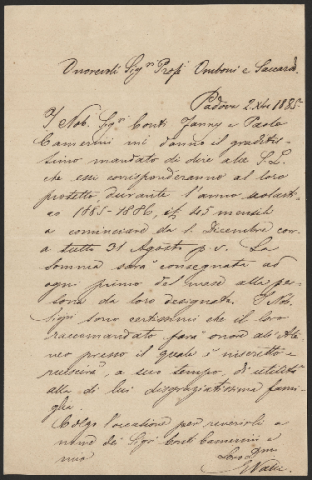 Onorevoli Sigri Profi Omboni e Saccardo.
Padova 2 Xbre 1885
I Nob. Sigri Conti Fanny e Paolo
Camerini mi danno il graditis-
simo mandato di dire alle S.L.
che essi corrisponderanno al loro
protetto, durante l'anno scolasti-
co 1885-1886, 45 mensili
a cominciare da 1. Dicembre corr.
a tutto 31 Agosto p.v. La
somma sarà consegnata ad
ogni primo del mese alla per-
sona da loro designata. I Nob.
Sigri sono certissimi che il loro
raccomandato farà onore all'Ate-
neo presso il quale è inscritto e
riescirà, a suo tempo, di utilità
alla di lui disgraziatissima fami-
glia.
Colgo l'occasione per riverirli a
nome dei Sigri Conti Camerini e
mio
Loro Dmo